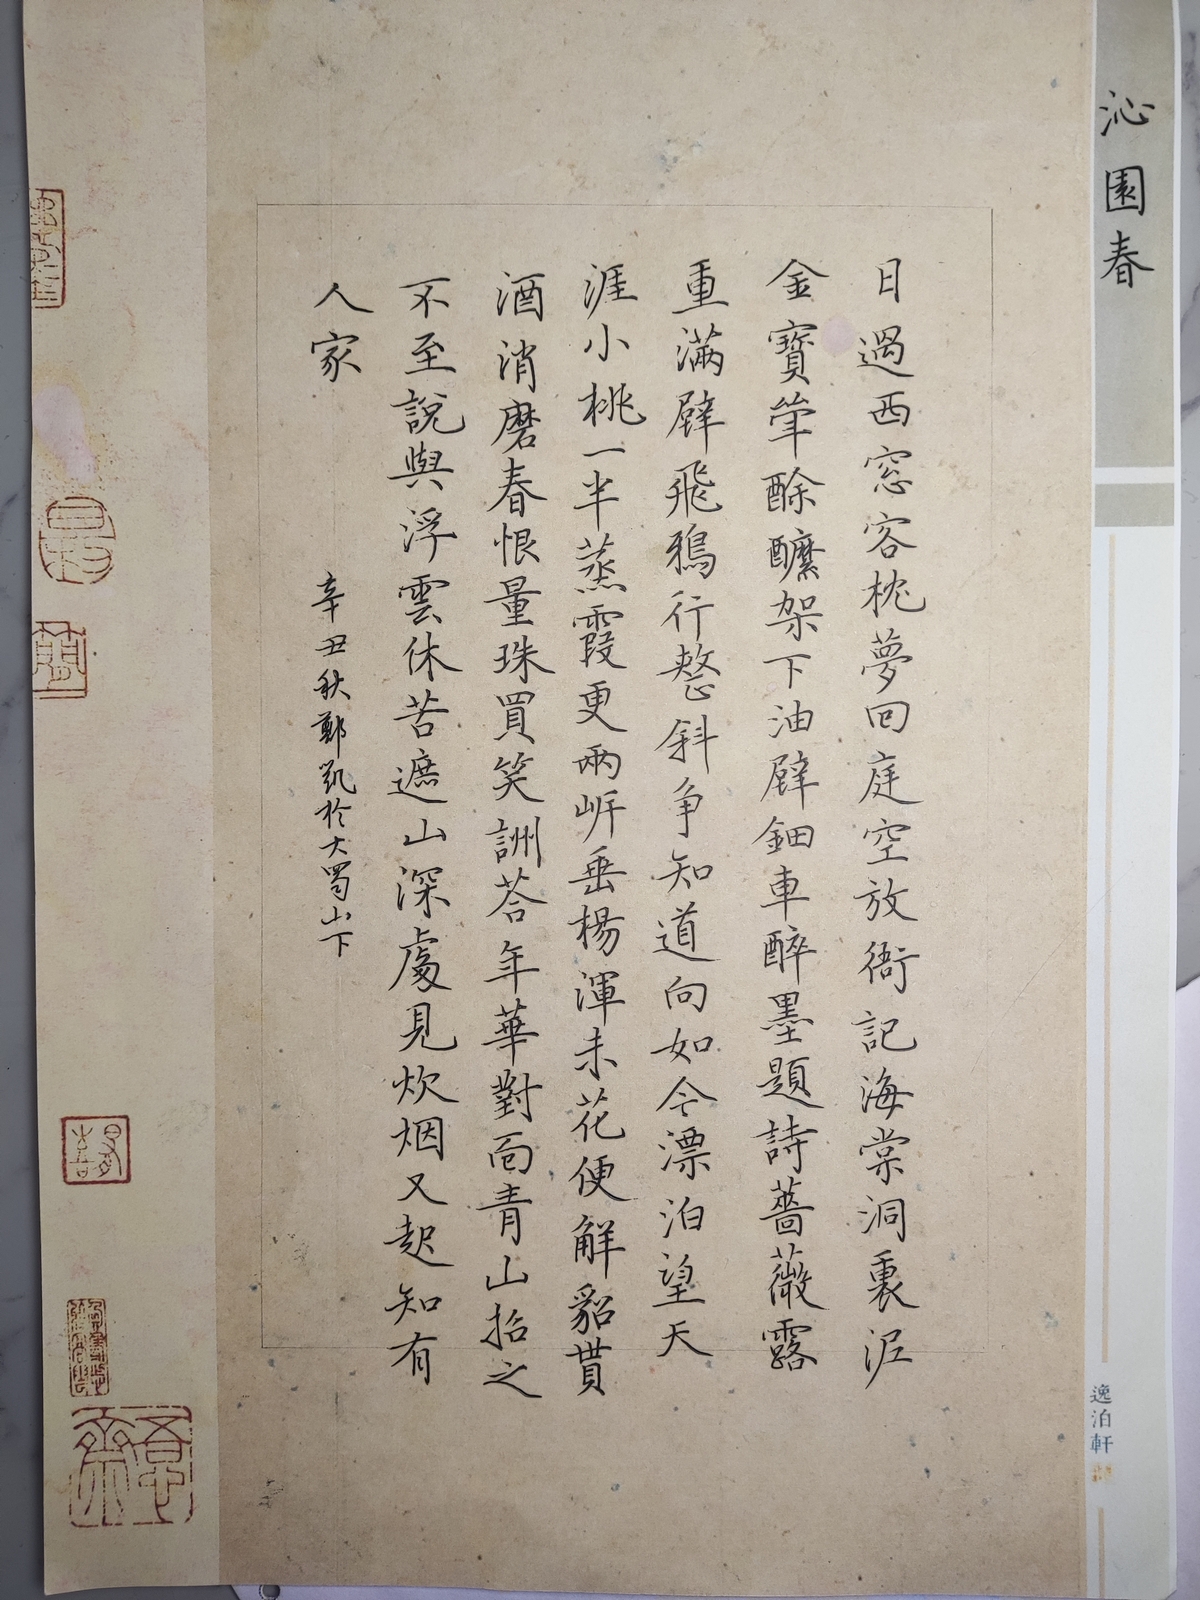 沁園春
日過西窓容枕夢回庭空放衙記海棠洞裏泥
金寶犖酴醿架下油壁鈿車醉墨題詩薔薇露
重滿壁飛鴉行整斜争知道向如今漂泊望天
涯小桃一半蒸霞更兩岍垂楊渾未花便解貂貰
酒消磨春恨量珠買笑詶荅年華對面青山招之
不至說與浮雲休苦遮山深處見炊烟又起知有
人家
辛丑秋鄭凱於大蜀山下
逸泊軒